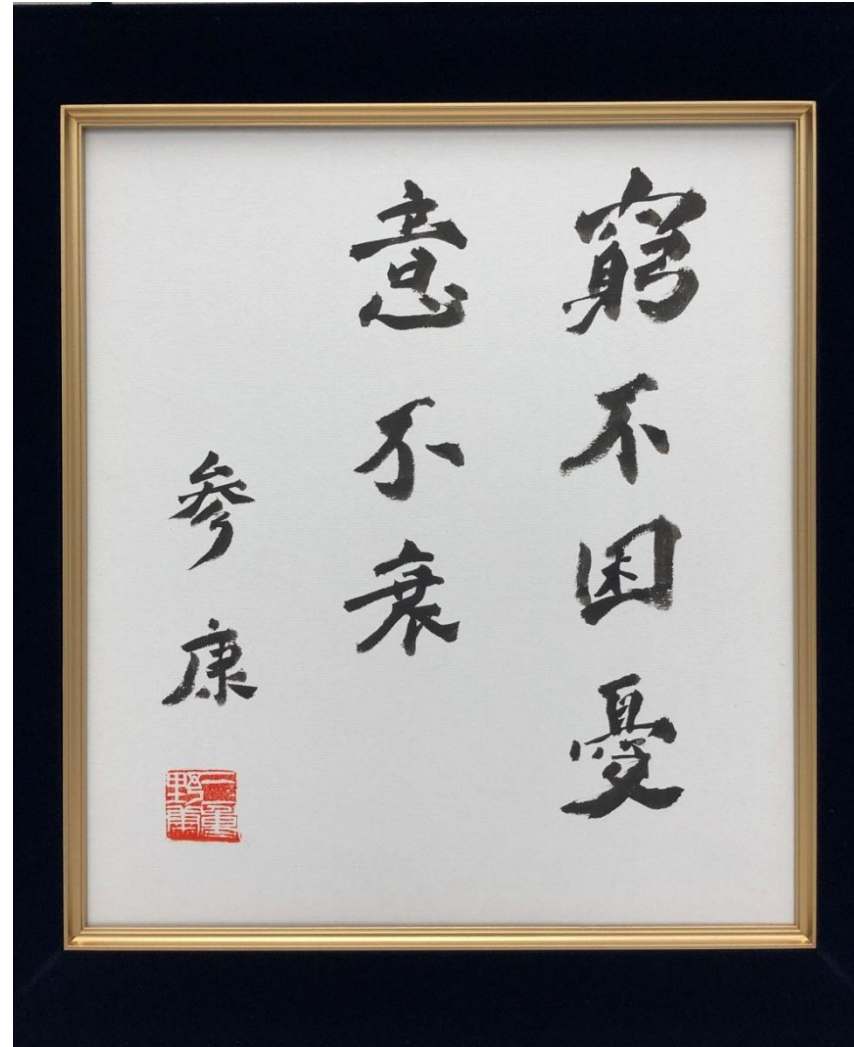 窮不困憂
意不衰
參康